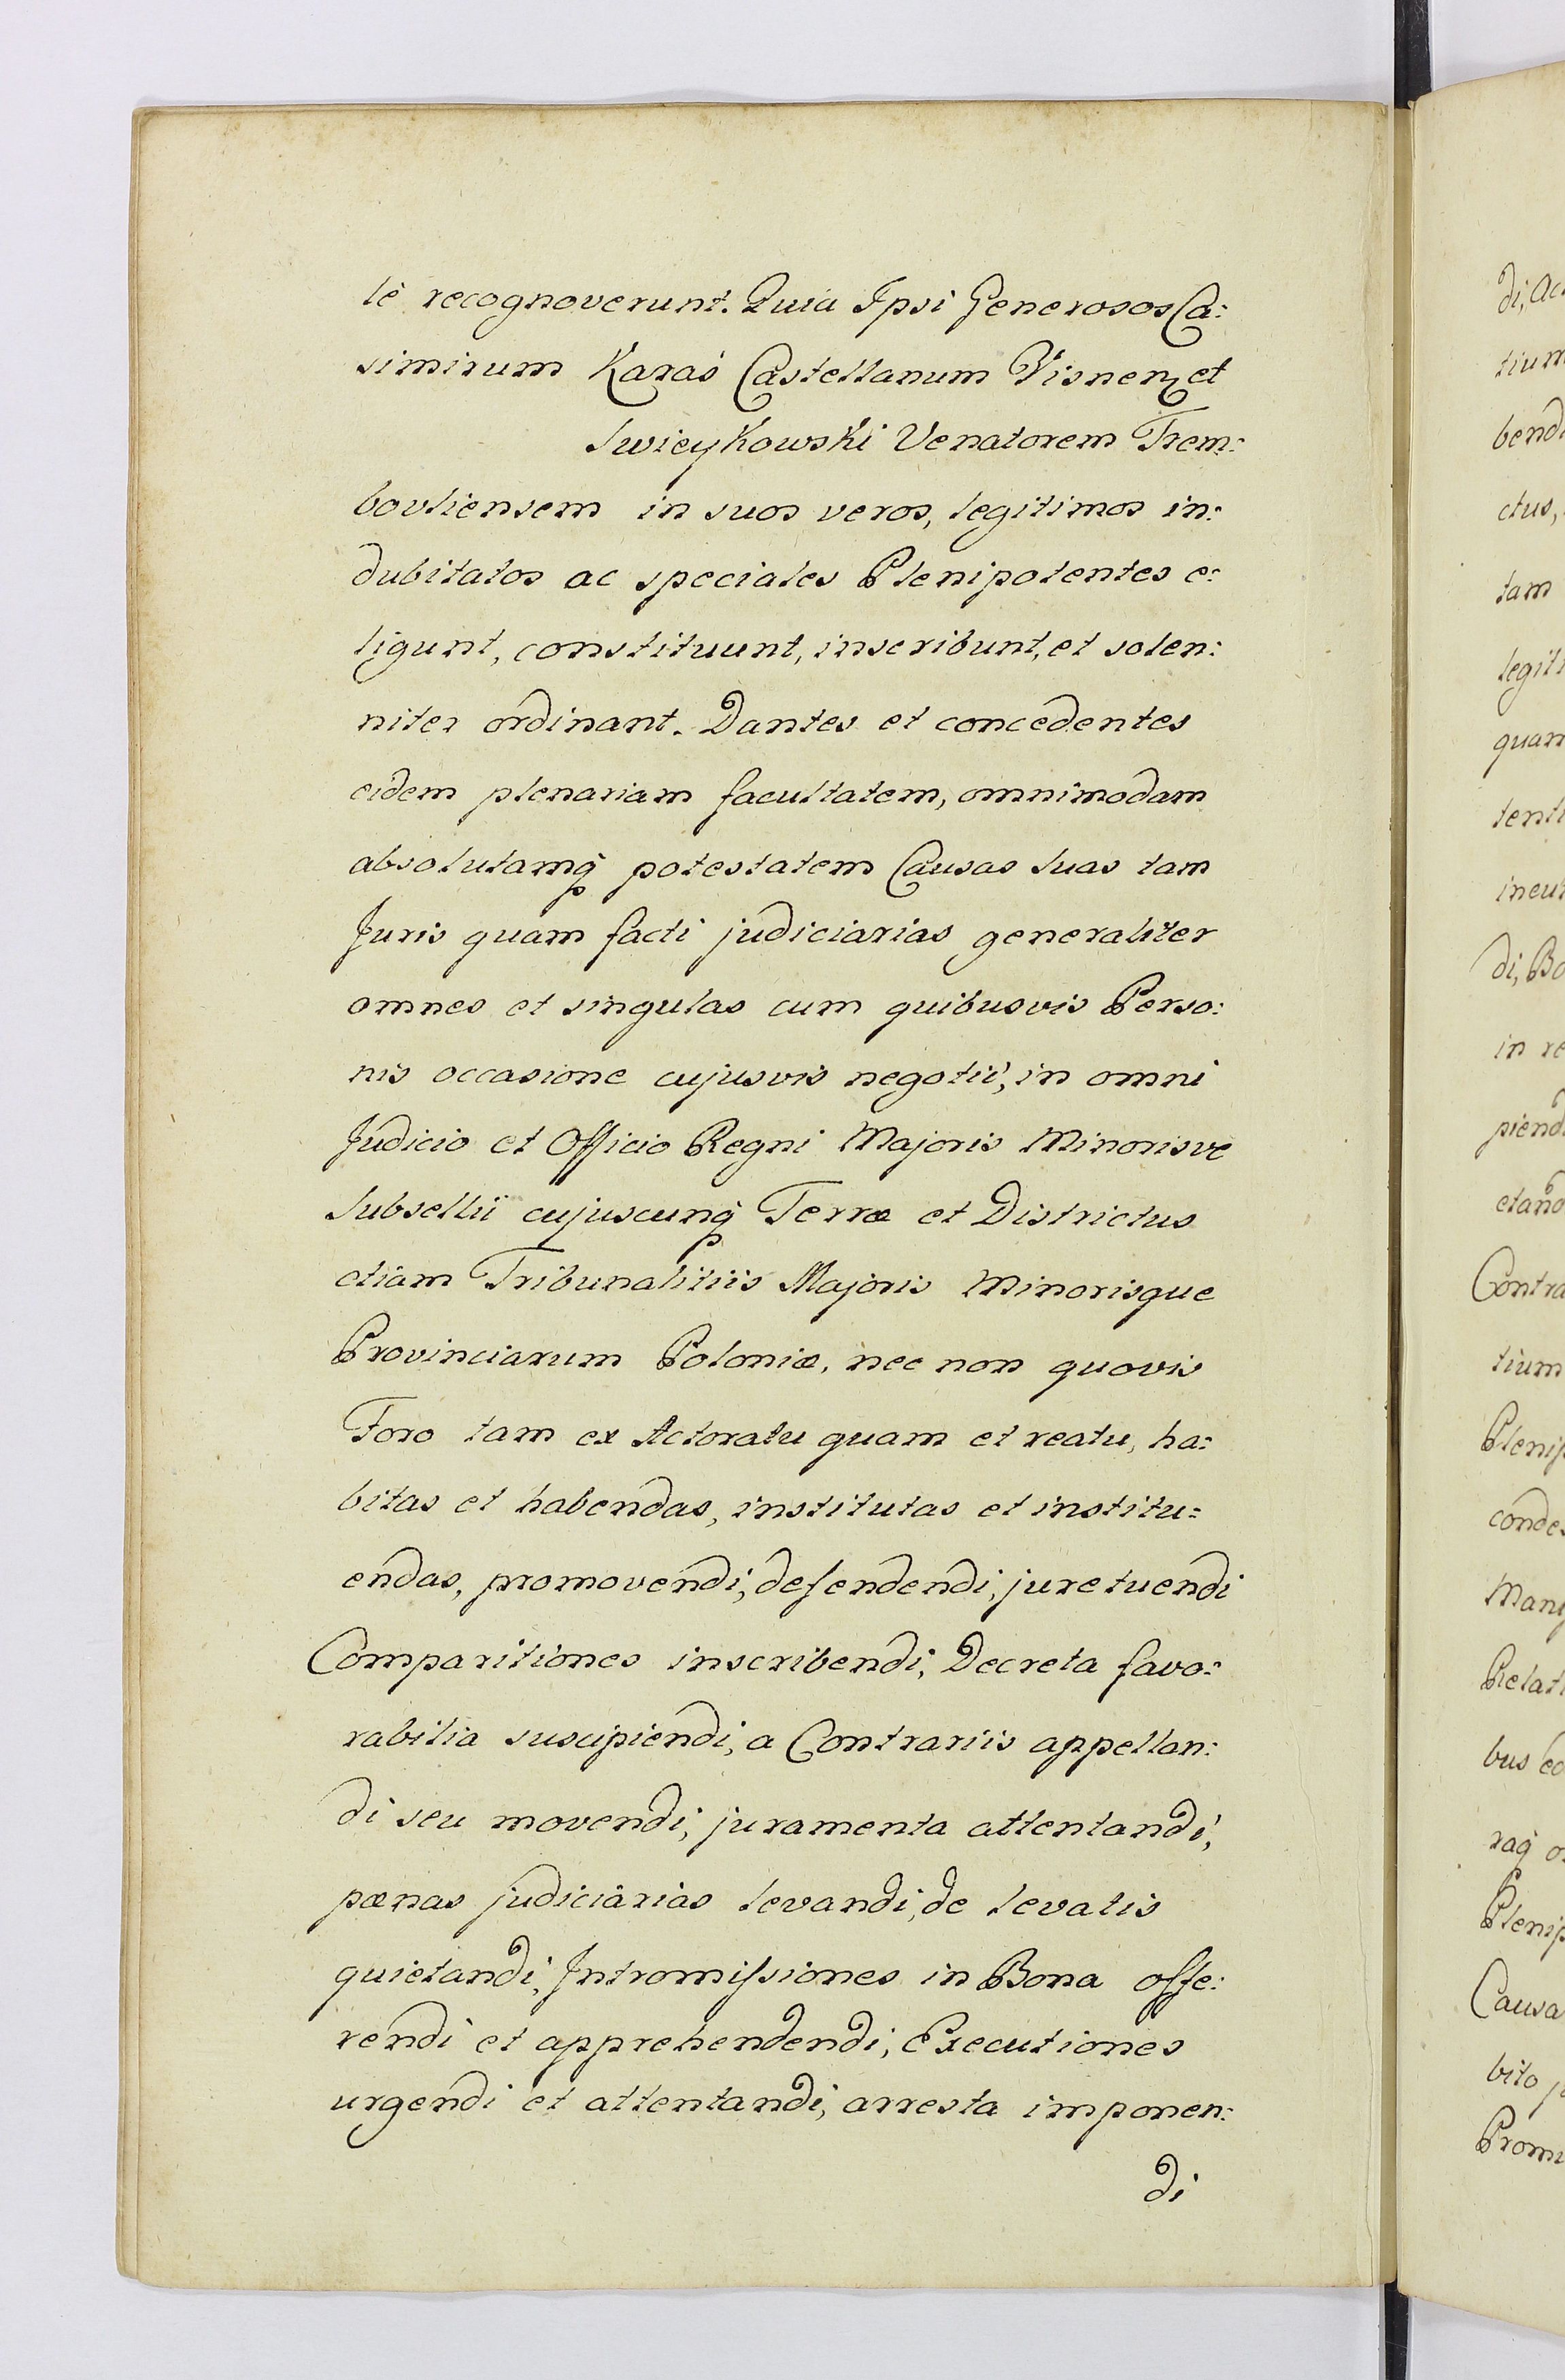 te recognoverunt. Quia Ipsi Generosos Ca:
simirum Karaś Castellanum Visnen et
Swieykowski Venatorem Trem:
bovliensem in suos veros, legitimos in:
dubitatos ac speciales Plenipotentes e:
ligunt, constituunt, inscribunt, et solen:
niter ordinant. Dantes et concedentes
eidem plenariam facultatem, omnimodam
absolutamq̃ potestatem Causas Suas tam
Juris quam facti judiciarias generaliter
omnes et singulas cum quibusvis Perso:
nis occasione cujusvis negotii, in omni
Judicio et Officio Regni Majoris Minorisve
Subsellii cujuscunq̃ Terræ et Districtus
etiam Tribunalitiis Majoris Minorisque
Provinciarum Poloniæ, nec non quovis
Foro tam ex Actoratu quam et reatu, ha:
bitas et habendas, institutas et institu:
endas, promovendi, defendendi, jure tuendi
Comparitiones inscribendi, Decreta favo:
rabilia suscipiendi, a Contrariis appellan:
di seu movendi, juramenta attentandi,
pœnas judiciarias levandi, de levatis
quietandi, Intromissiones in Bona offe:
rendi et apprehendendi, Executiones
urgendi et attentandi, arresta imponen:
di